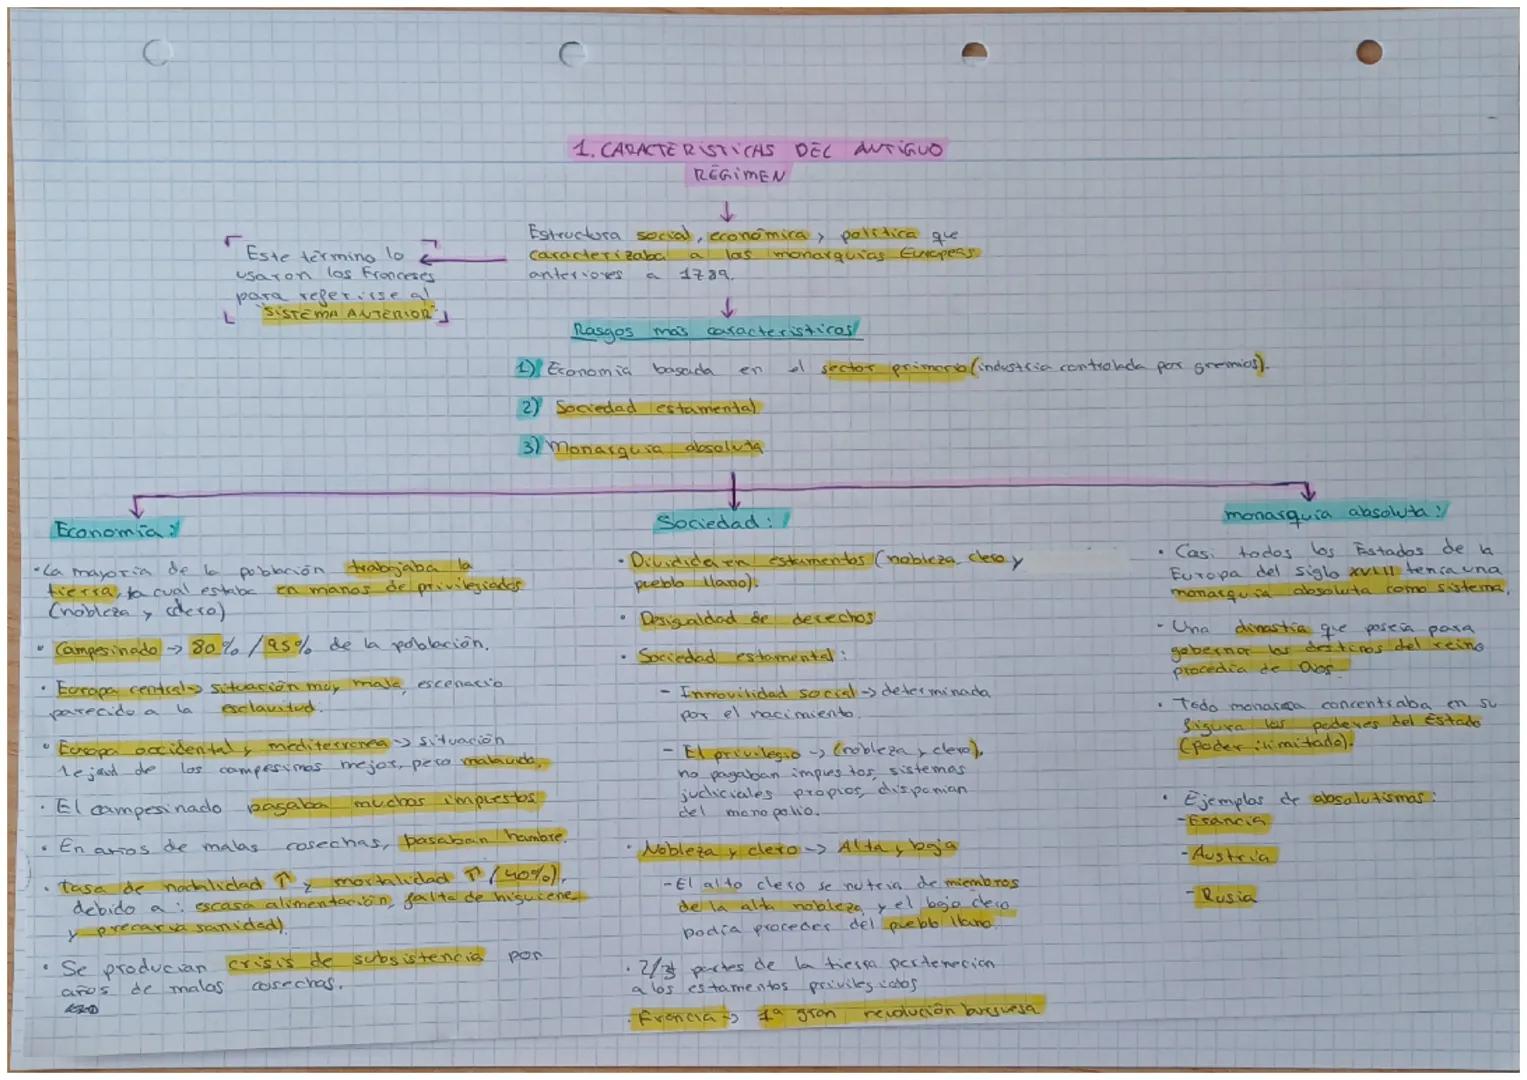 1. CARACTERISTICAS DEL ANTIGUO
RÉGIMEN
Estructura social, económica y política que
caracterizaba a las monarquías Europeas
anteriores a 1789.
Este término lo
usaron los Franceses
para referirse al
"SISTEMA ANTERIOR"
Rasgos más caracteristicos/
1) Economia basada en el sector primario (industria controlada por gremios).
2) Sociedad estamental
3) Monarquia absoluta
Economía:
·La mayoría de la población trabajaba la
tierra, la cual estaba en manos de privilegiados
(nobleza y clero)
· Campesinado → 80% / 95% de la población.
· Europa central → situación muy mala, escenario
parecido a la esclavitud.
· Europa occidental y mediterranea → situación
de los campesinos mejor, pero malavida.
· El campesinado pagaba muchos impuestos
· En años de malas cosechas, pasaban hambre.
· Tasa de natalidad ↑ y mortalidad ↑ (40%),
debido a: escasa alimentación, falta de higuiene
y precaria sanidad).
· Se producian crisis de subsistencia por
años de malas cosechas.
Sociedad:
· Dividida en estamentos (nobleza, clero y
pueblo llano).
· Desigualdad de derechos
· Sociedad estamental:
- Inmovilidad social → determinada
por el nacimiento.
- El privilegio → (nobleza y clero),
no pagaban impuestos, sistemas
judiciales propios, disponian
del monopolio.
· Nobleza y clero → Alta y baja
-El alto clero se nutria de miembros
de la alta nobleza y el bajo clero
podia proceder del pueblo llano.
· 2/3 partes de la tierra pertenecian
a los estamentos privilegiados
· Francia → 1ª gran revolución burguesa
monarquía absoluta:
· Casi todos los Estados de la
Europa del siglo XVIII tenia una
monarquia absoluta como sistema.
· Una dinastia que poseia para
gobernar los destinos del reino
procedia de Dios.
· Todo monarca concentraba en su
figura los poderes del Estado
(poder ilimitado).
· Ejemplos de absolutismos:
-Francia
-Austria
-Rusia